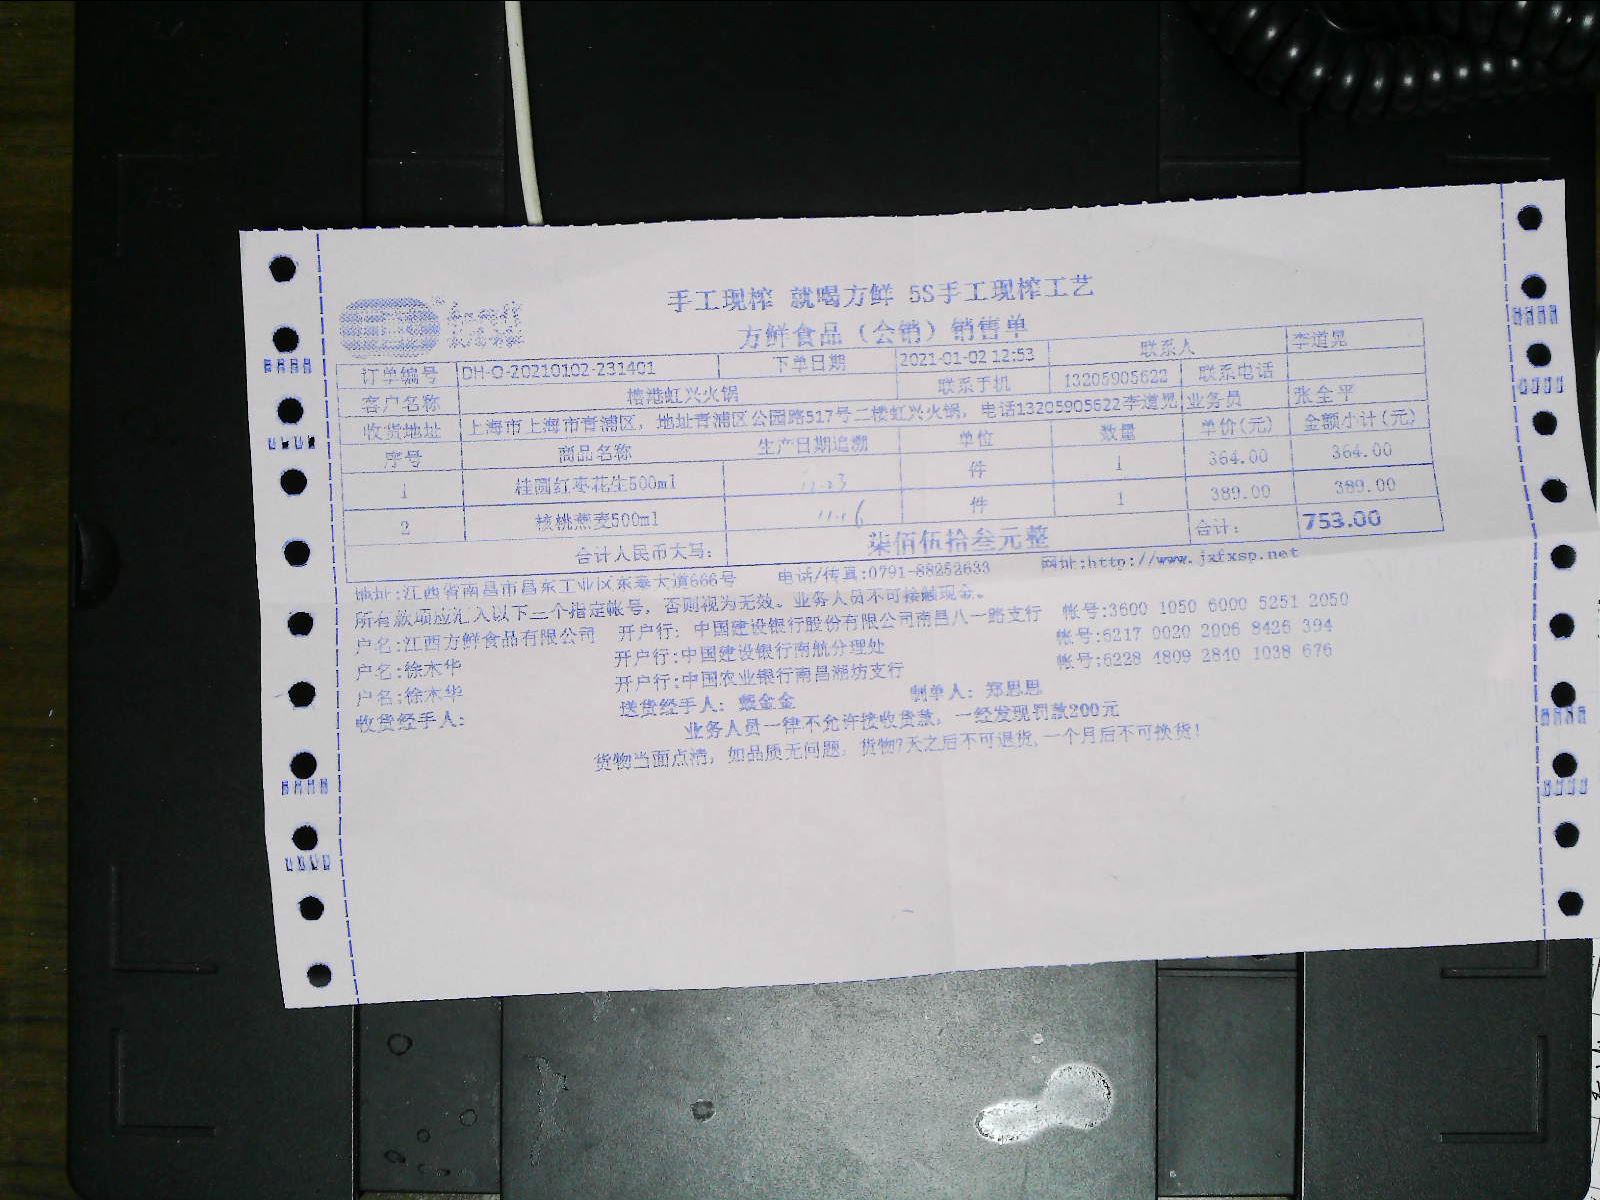 手工现榨 就喝方鲜 5S手工现榨工艺
方鲜食品（会销）销售单
订单编号 DH-O-20210102-231401 下单日期 2021-01-02 12:53 联系人 李道晃
客户名称 楼港虹兴火锅 联系手机 13205905622 联系电话
收货地址 上海市上海市青浦区，地址青浦区公园路517号二楼虹兴火锅，电话13205905622李道晃 业务员 张全平
序号 商品名称 生产日期追溯 单位 数量 单价(元) 金额小计(元)
1 桂圆红枣花生500ml 11.23 件 1 364.00 364.00
2 核桃燕麦500ml 11.16 件 1 389.00 389.00
合计人民币大写： 柒佰伍拾叁元整 合计： 753.00
地址:江西省南昌市昌东工业区东泰大道666号 电话/传真:0791-88252633 网址:http://www.jxfxsp.net
所有款项应汇入以下三个指定帐号，否则视为无效。业务人员不可接触现金。
户名:江西方鲜食品有限公司 开户行：中国建设银行股份有限公司南昌八一路支行 帐号:3600 1050 6000 5251 2050
户名:徐木华 开户行:中国建设银行南航分理处 帐号:6217 0020 2006 8426 394
户名:徐木华 开户行:中国农业银行南昌湖坊支行 帐号:6228 4809 2840 1038 676
收货经手人: 送货经手人：戴金金 制单人：郑思思
业务人员一律不允许接收货款，一经发现罚款200元
货物当面点清，如品质无问题，货物7天之后不可退货,一个月后不可换货！